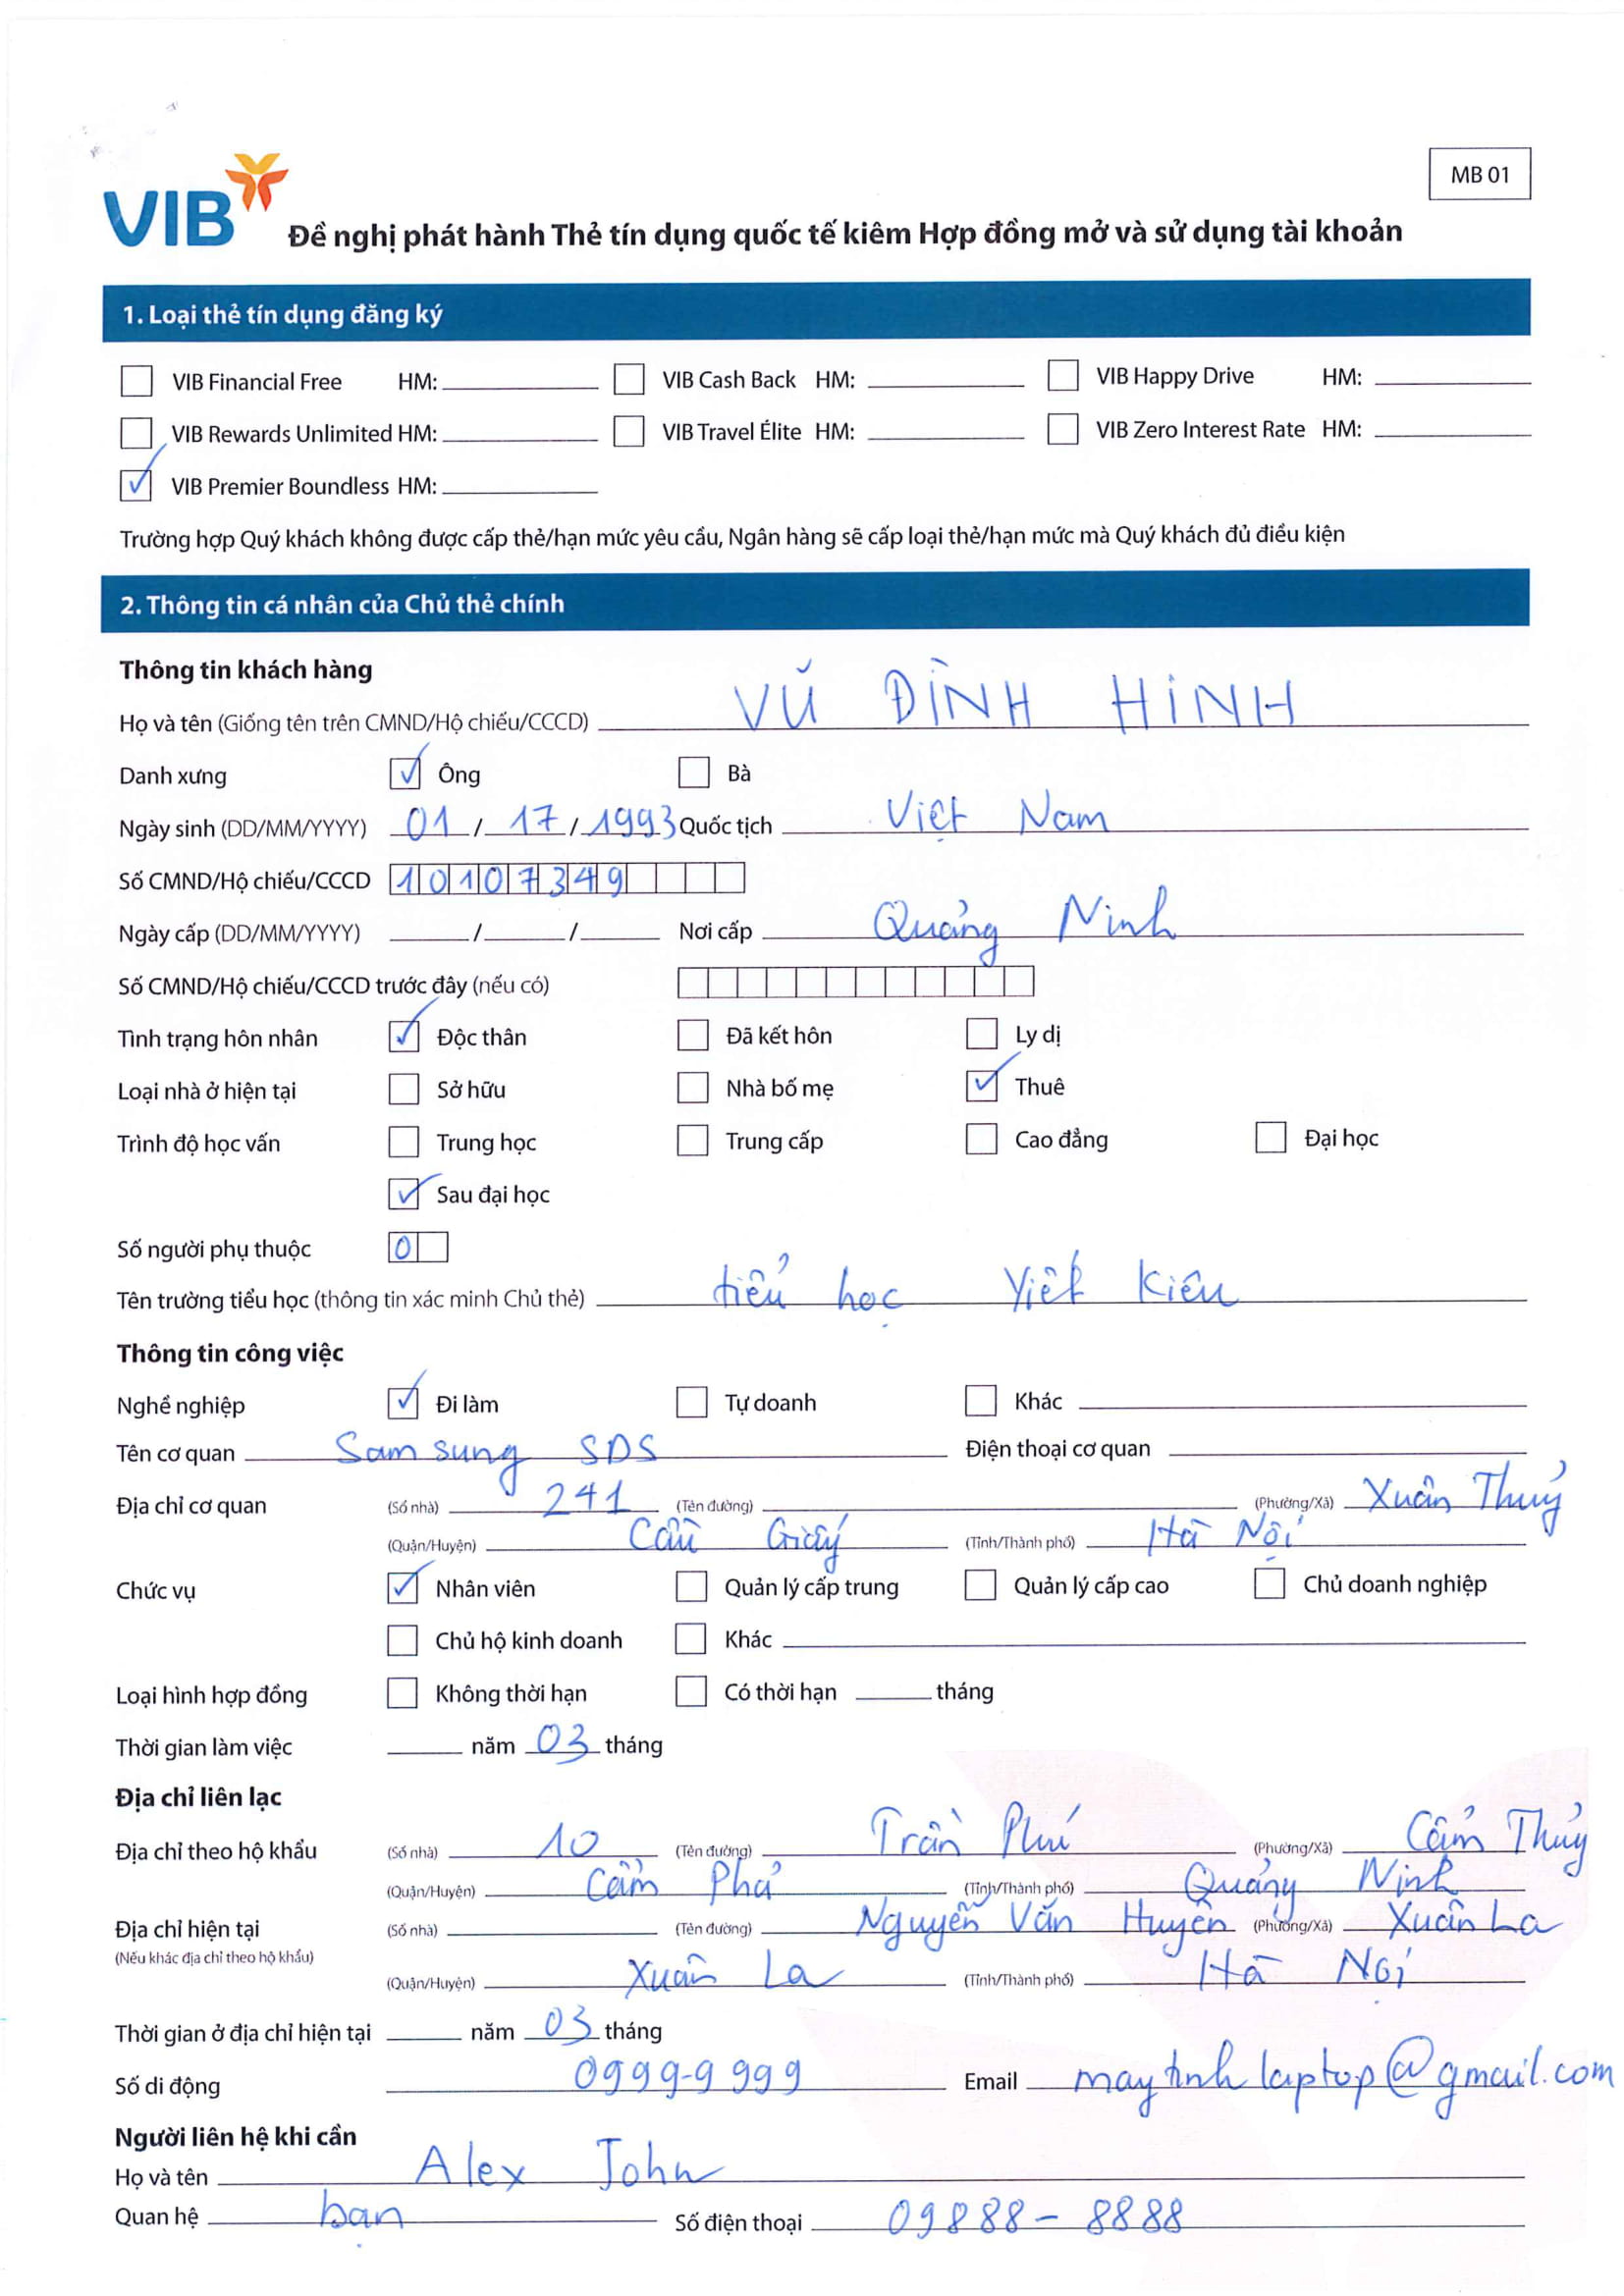 MB 01
VIB
Đề nghị phát hành Thẻ tín dụng quốc tế kiêm Hợp đồng mở và sử dụng tài khoản
1. Loại thẻ tín dụng đăng ký
VIB Financial Free HM: VIB Cash Back HM: VIB Happy Drive HM:
VIB Rewards Unlimited HM: VIB Travel Élite HM: VIB Zero Interest Rate HM:
VIB Premier Boundless HM:
Trường hợp Quý khách không được cấp thẻ/hạn mức yêu cầu, Ngân hàng sẽ cấp loại thẻ/hạn mức mà Quý khách đủ điều kiện
2. Thông tin cá nhân của Chủ thẻ chính
Thông tin khách hàng
Họ và tên (Giống tên trên CMND/Hộ chiếu/CCCD) VŨ ĐÌNH HINH
Danh xưng Ông Bà
Ngày sinh (DD/MM/YYYY) 01 / 17 / 1993 Quốc tịch Việt Nam
Số CMND/Hộ chiếu/CCCD 10107349
Ngày cấp (DD/MM/YYYY) / / Nơi cấp Quảng Ninh
Số CMND/Hộ chiếu/CCCD trước đây (nếu có)
Tình trạng hôn nhân Độc thân Đã kết hôn Ly dị
Loại nhà ở hiện tại Sở hữu Nhà bố mẹ Thuê
Trình độ học vấn Trung học Trung cấp Cao đẳng Đại học
Sau đại học
Số người phụ thuộc 0
Tên trường tiểu học (thông tin xác minh Chủ thẻ) tiểu học Việt Kiêu
Thông tin công việc
Nghề nghiệp Đi làm Tự doanh Khác
Tên cơ quan Samsung SDS Điện thoại cơ quan
Địa chỉ cơ quan (Số nhà) 241 (Tên đường) (Phường/Xã) Xuân Thuỷ
(Quận/Huyện) Cầu Giấy (Tỉnh/Thành phố) Hà Nội
Chức vụ Nhân viên Quản lý cấp trung Quản lý cấp cao Chủ doanh nghiệp
Chủ hộ kinh doanh Khác
Loại hình hợp đồng Không thời hạn Có thời hạn tháng
Thời gian làm việc năm 03 tháng
Địa chỉ liên lạc
Địa chỉ theo hộ khẩu (Số nhà) 10 (Tên đường) Trần Phú (Phường/Xã) Cẩm Thủy
(Quận/Huyện) Cẩm Phả (Tỉnh/Thành phố) Quảng Ninh
Địa chỉ hiện tại (Số nhà) (Tên đường) Nguyễn Văn Huyên (Phường/Xã) Xuân La
(Nếu khác địa chỉ theo hộ khẩu)
(Quận/Huyện) Xuân La (Tỉnh/Thành phố) Hà Nội
Thời gian ở địa chỉ hiện tại năm 03 tháng
Số di động 0999-9 999 Email maytinhlaptop@gmail.com
Người liên hệ khi cần
Họ và tên Alex John
Quan hệ bạn Số điện thoại 09888-8888